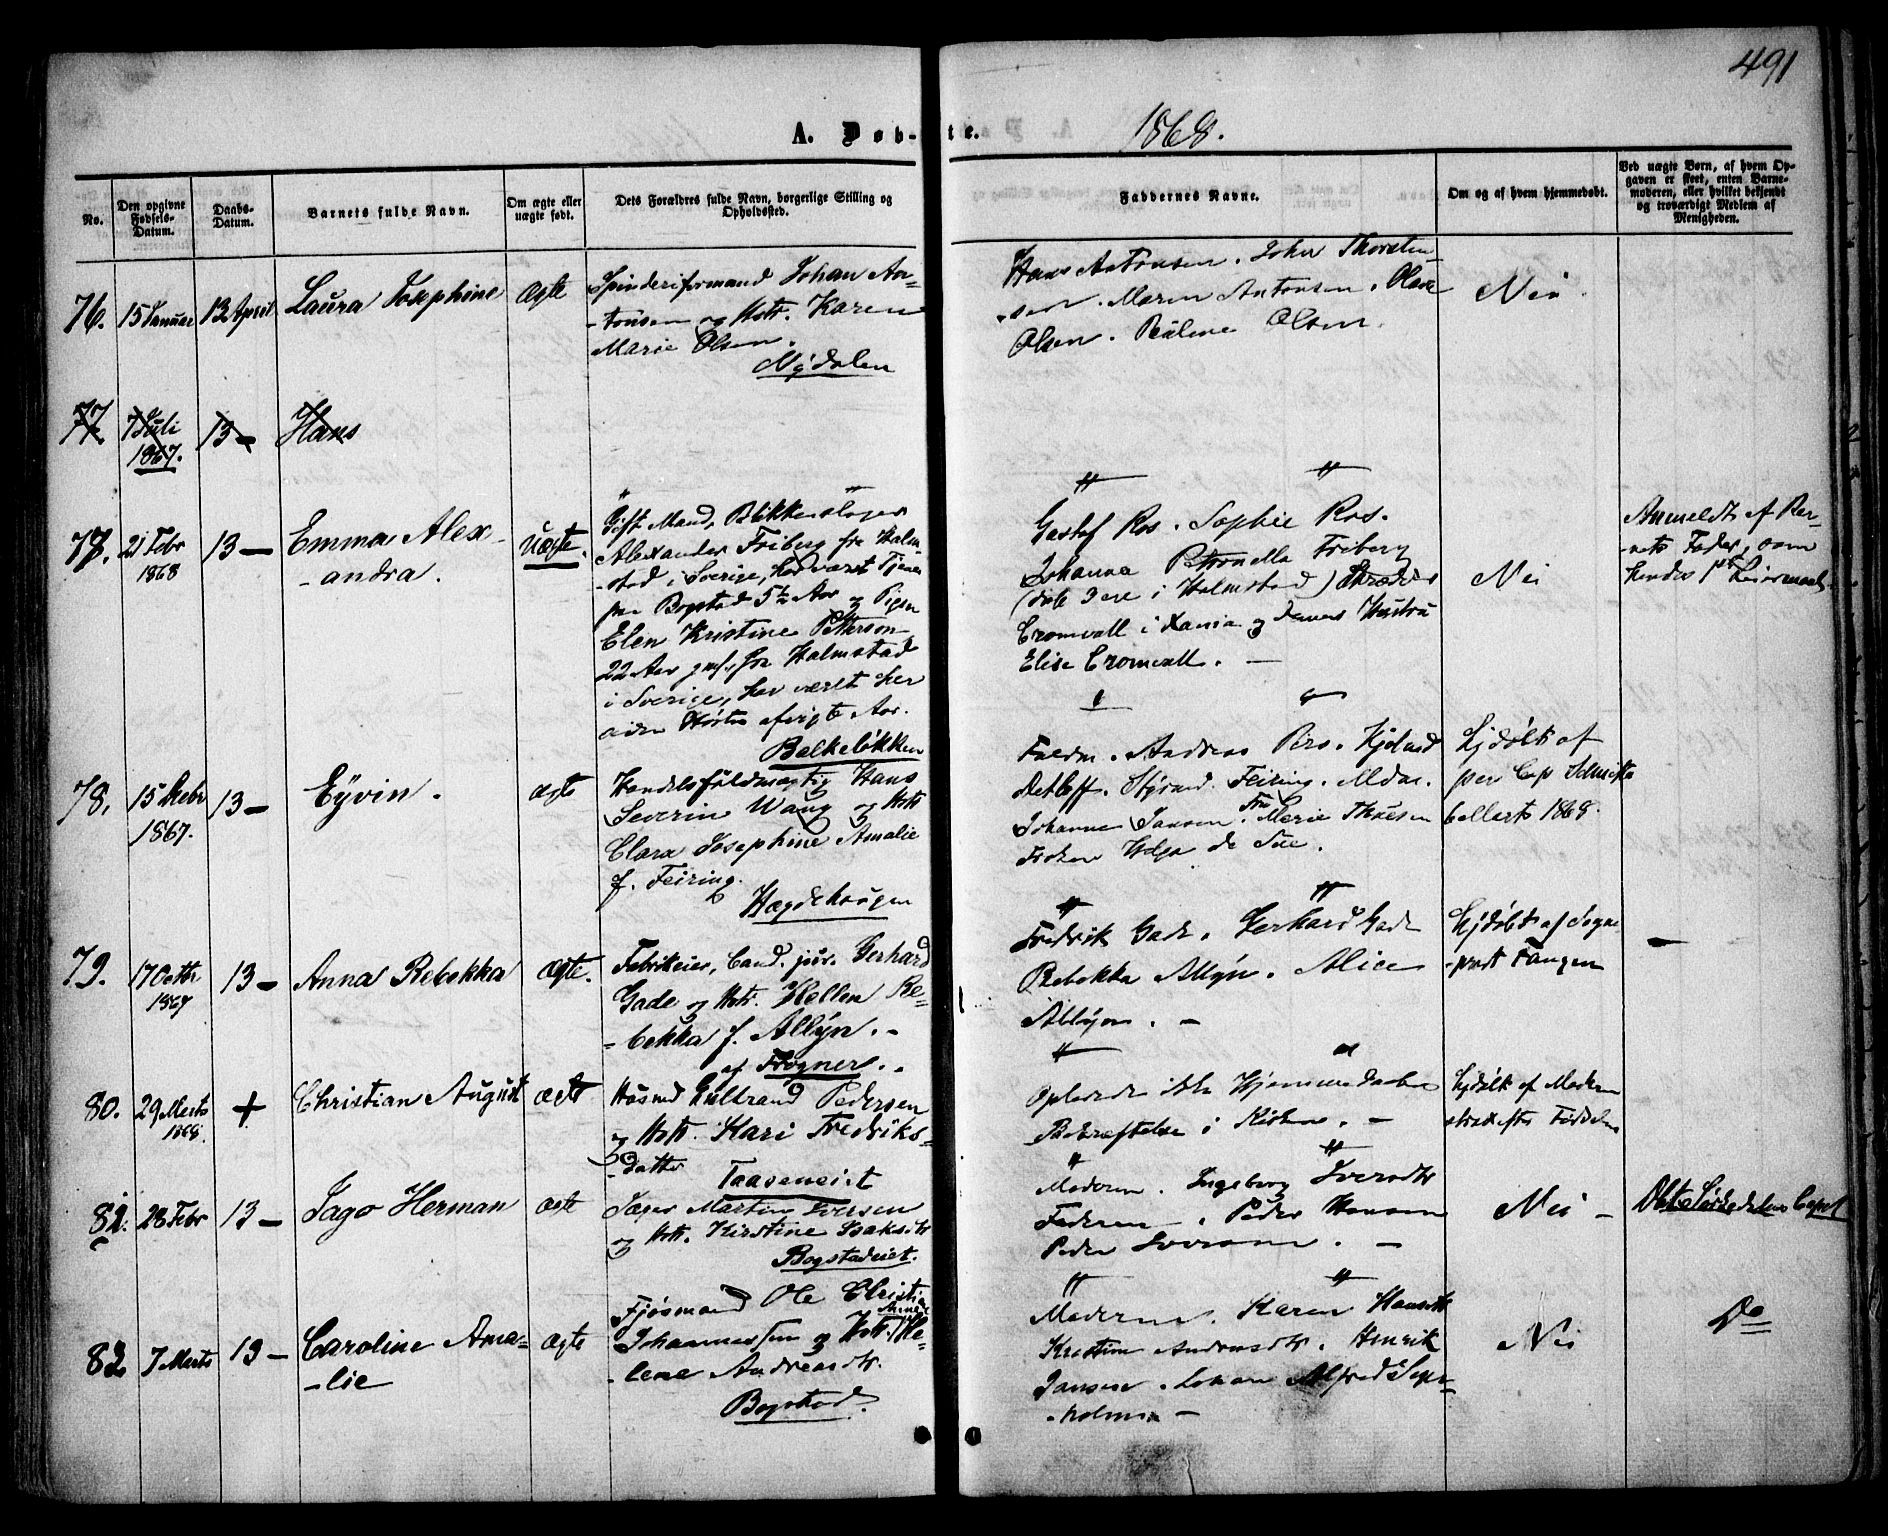 491
A. Døb-te. 1868.
No.
Den opgivne Fødsels-Datum.
Daabs-Datum.
Barnets fulde Navn.
Om ægte eller uægte født.
Dets Forældres fulde Navn, borgerlige Stilling og Opholdssted.
Faddernes Navne.
Om og af hvem hjemmedøbt.
Ved uægte Børn, af hvem Opgaven er skeet, enten Barnemoderen, eller hvilket bekjendt og troværdigt Medlem af Menigheden.
76. 15 Januar 13 April Laura Josephine ægte
Spinderiformand Johan An-
-tonsen og Hstr. Karen
Marie Olsen.
Nydalen
Hans Antonsen. Johan Thorsten-
-sen. Maren Antonsen. Olave
Olsen. Pauline Olsen.
Nei.
77. 7 Juli 1867. 13- Hans
77. 21 Febr 1868 13- Emma Alex-
-andra. Uægte.
Gift Mand, Blikkenslager
Alexander Friberg fra Halm-
-stad i Sverige, har været Tjener
paa Bogstad 5½ Aar og Pigen
Elen Kristine Petterson
22 Aar fra Halmstad
i Sverige, har været her
siden Høsten afvigte Aar.
Balkeløkken
Gustaf Ros. Sophie Ros.
Johanna Petronella Friberg
(disse 3 ere i Halmstad) Skrædder
Cromvall i Xania og dennes Hustru
Elise Cromvall. -
Nei
Anmeldt af Bar-
-nets Fader, som
hendes 1ste Leiermaal
78. 15 Febr 1867. 13- Eÿvin. ægte
Handelsfuldmægtig Hans
Severin Waug og Hstr
Clara Josephine Amalie
f. Feiring.
Hægdehaugen
Fuldm. Andreas Bers. Hjelmd
Detleff. Styrmd Feiring. Mdm.
Johanne Jansen. Fru Marie Thuesen
Frøken Helga de Sue.
Hjdøbt af
per Cap Schmidt
6 Marts 1868.
79. 17 Octbr 1867 13- Anna Rebekka ægte.
Fabrikeier, Cand. jur. Gerhard
Gade og Hstr. Hellen Re-
-bekka f. Allÿn. -
af Frogner. .
Fredrik Gade. Gerhard Gade
Rebekka Allÿn. Alice
Allÿn. -
Hjdøbt af Sogne-
-præst Fangen
-
80. 29 Marts 1868. + Christian August ægte
Husmd Gulbrand Pedersen
og Hstr. Kari Fredriks-
-datter
Taaseneiet
Oplæst ikke Hjemmedaabs
Bekræftelse i Kirken. -
Hjdøbt af Moderen
strax efter Fødselen
81. 28 Febr 13- Jago Herman ægte
Jæger Martin Iversen
og Hstr. Kirstine Isaksdtr
Bogstadeiet.
Moderen. Ingeborg Iversdtr
Faderen. Peder Hansen
Peder Iversen. -
Nei -
Døbt i Sørkedalens Capel
82 7 Marts 13- Caroline Ama-
-lie ægte
Fjøsmand Ole Christian
Johannessen og Hstr. Anne He-
-lene Andreasdtr.
Bogstad.
Moderen. Karen Hansdtr
Kristine Andersdtr. Henrik
Jansen. Johan Alfred Seger-
-holm -
Nei
Do